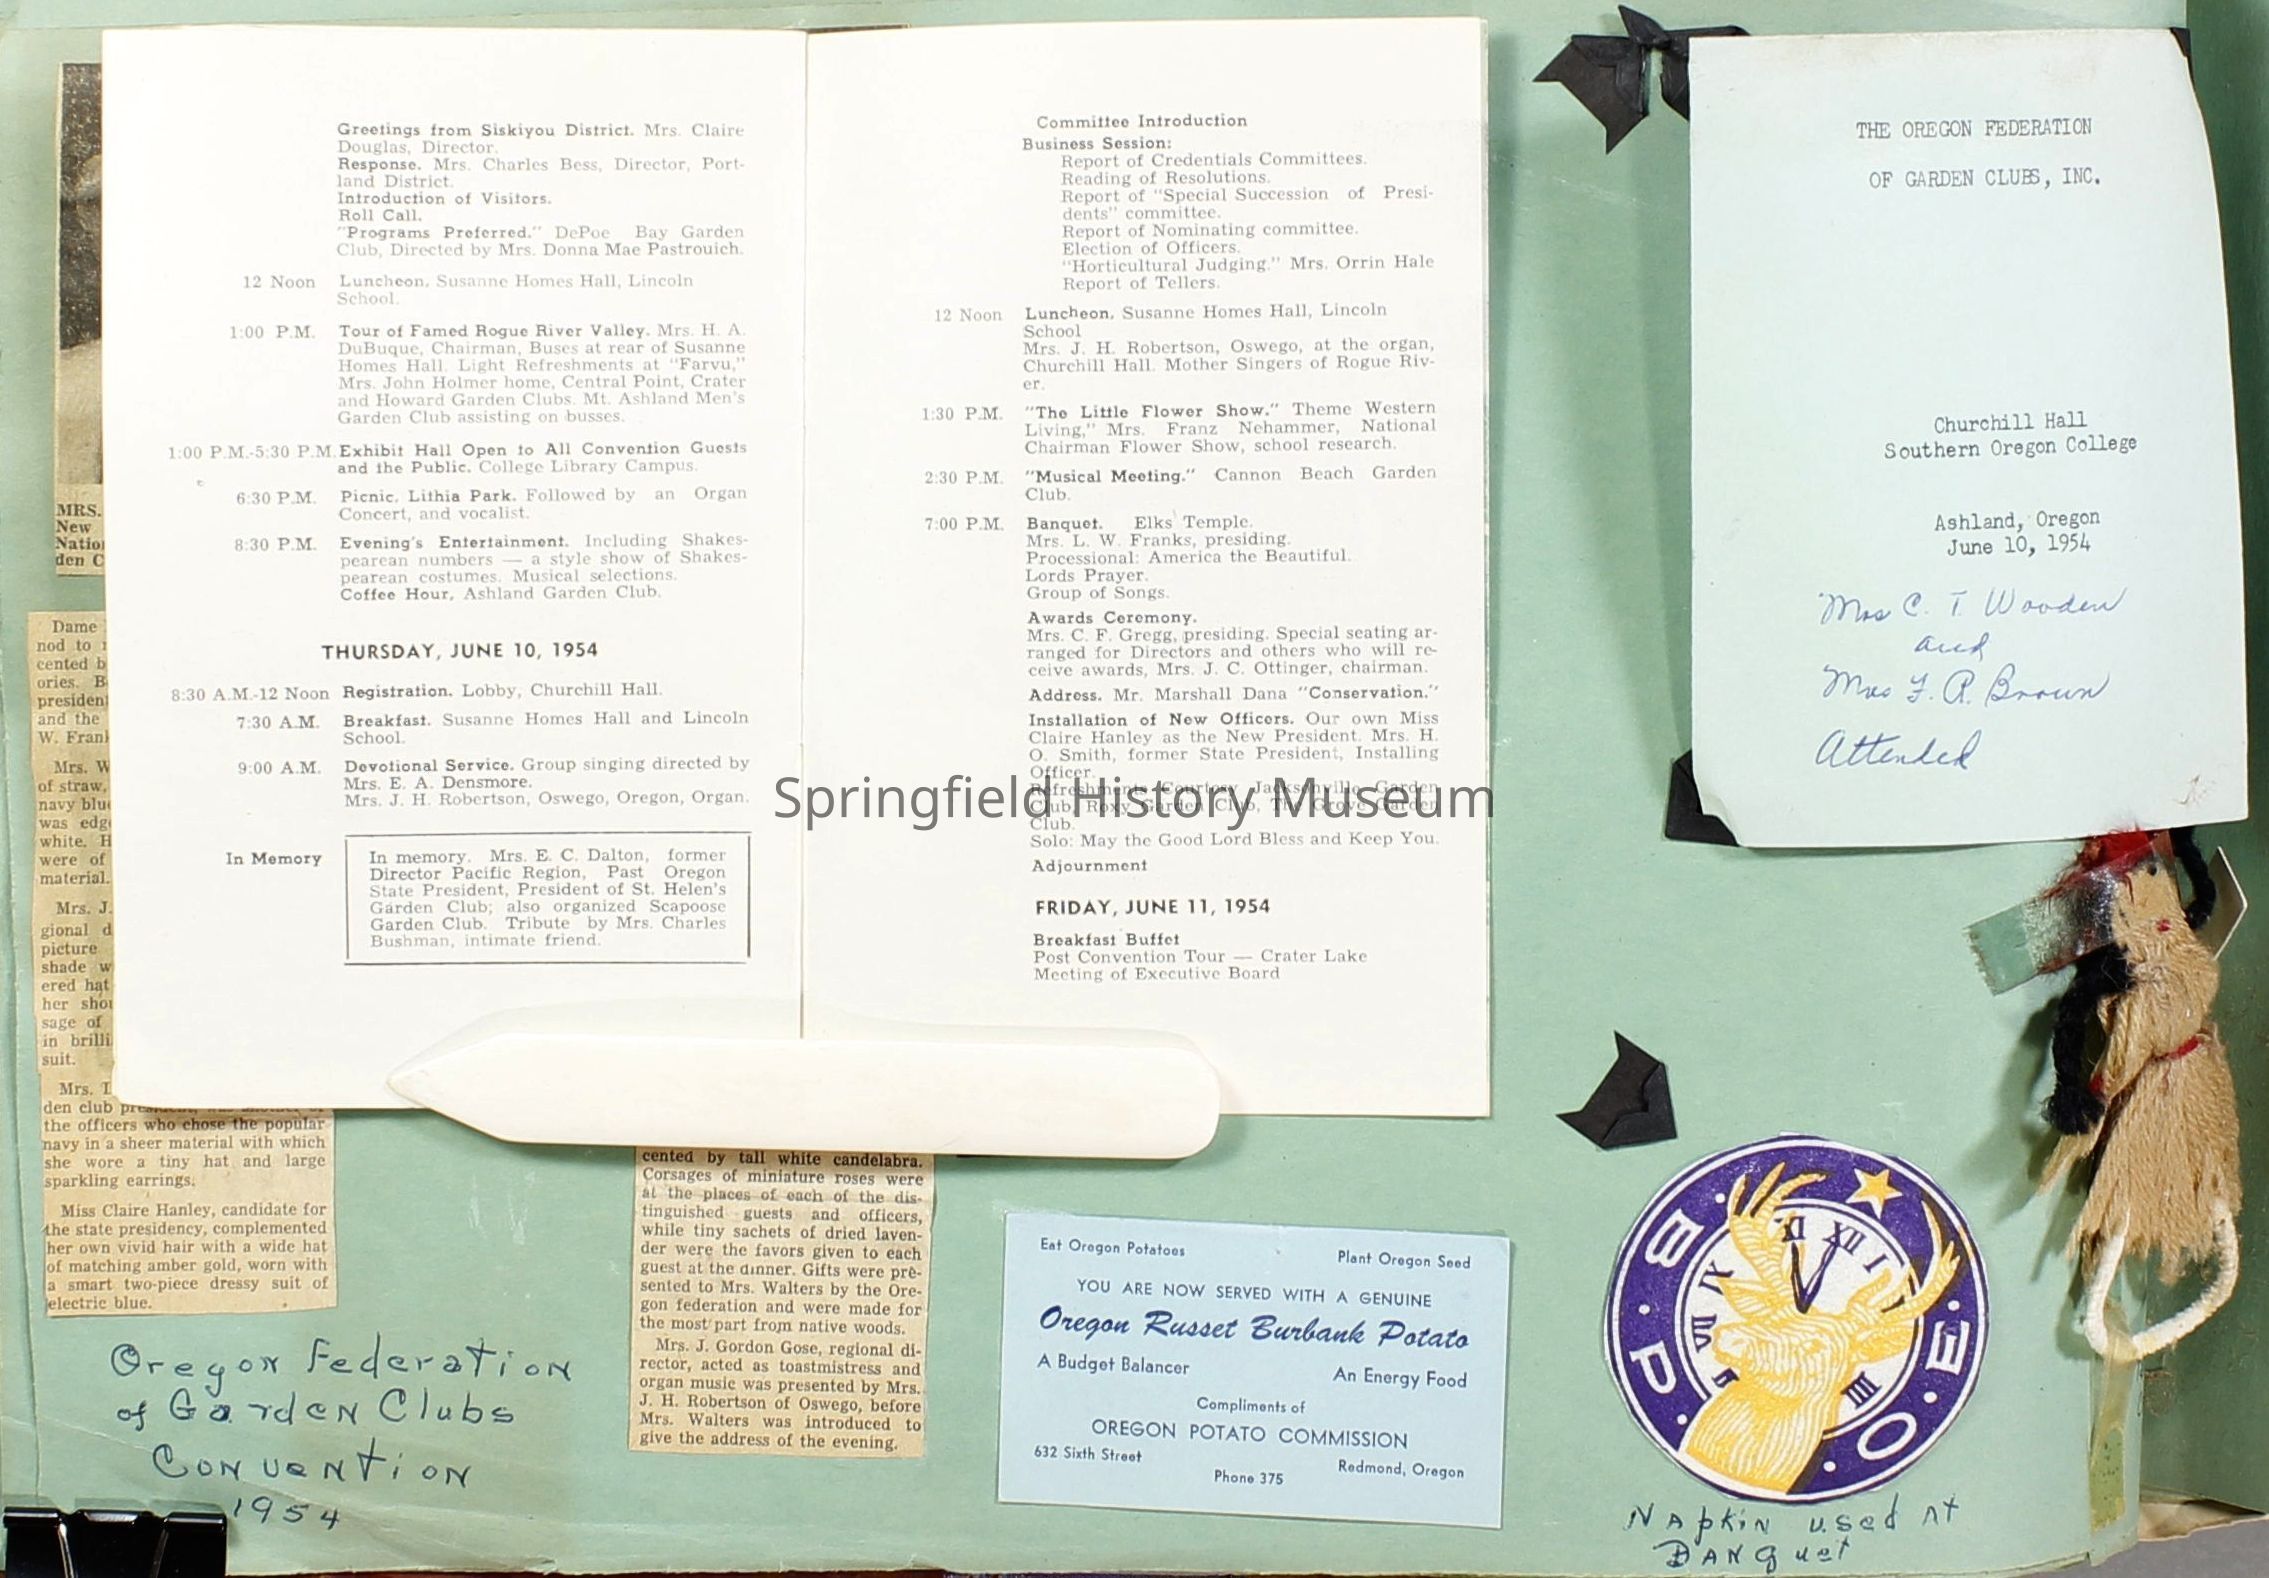 Greetings from Siskiyou District. Mrs. Claire
Douglas, Director.
Response. Mrs. Charles Bess, Director, Port-
land District.
Introduction of Visitors.
Roll Call.
"Programs Preferred." DePoe Bay Garden
Club, Directed by Mrs. Donna Mae Pastrouich.
12 Noon Luncheon. Susanne Homes Hall, Lincoln
School.
1:00 P.M. Tour of Famed Rogue River Valley. Mrs. H. A.
DuBuque, Chairman, Buses at rear of Susanne
Homes Hall. Light Refreshments at "Farvu,"
Mrs. John Holmer home, Central Point, Crater
and Howard Garden Clubs. Mt. Ashland Men's
Garden Club assisting on busses.
1:00 P.M.-5:30 P.M. Exhibit Hall Open to All Convention Guests
and the Public. College Library Campus.
6:30 P.M. Picnic. Lithia Park. Followed by an Organ
Concert, and vocalist.
8:30 P.M. Evening's Entertainment. Including Shakes-
pearean numbers — a style show of Shakes-
pearean costumes. Musical selections.
Coffee Hour, Ashland Garden Club.
THURSDAY, JUNE 10, 1954
8:30 A.M.-12 Noon Registration. Lobby, Churchill Hall.
7:30 A.M. Breakfast. Susanne Homes Hall and Lincoln
School.
9:00 A.M. Devotional Service. Group singing directed by
Mrs. E. A. Densmore.
Mrs. J. H. Robertson, Oswego, Oregon, Organ.
In Memory In memory. Mrs. E. C. Dalton, former
Director Pacific Region, Past Oregon
State President, President of St. Helen's
Garden Club; also organized Scapoose
Garden Club. Tribute by Mrs. Charles
Bushman, intimate friend.
Committee Introduction
Business Session:
Report of Credentials Committees.
Reading of Resolutions.
Report of "Special Succession of Presi-
dents" committee.
Report of Nominating committee.
Election of Officers.
"Horticultural Judging." Mrs. Orrin Hale
Report of Tellers.
12 Noon Luncheon. Susanne Homes Hall, Lincoln
School
Mrs. J. H. Robertson, Oswego, at the organ,
Churchill Hall. Mother Singers of Rogue Riv-
er.
1:30 P.M. "The Little Flower Show." Theme Western
Living," Mrs. Franz Nehammer, National
Chairman Flower Show, school research.
2:30 P.M. "Musical Meeting." Cannon Beach Garden
Club.
7:00 P.M. Banquet. Elks Temple.
Mrs. L. W. Franks, presiding.
Processional: America the Beautiful.
Lords Prayer.
Group of Songs.
Awards Ceremony.
Mrs. C. F. Gregg, presiding. Special seating ar-
ranged for Directors and others who will re-
ceive awards, Mrs. J. C. Ottinger, chairman.
Address. Mr. Marshall Dana "Conservation."
Installation of New Officers. Our own Miss
Claire Hanley as the New President. Mrs. H.
O. Smith, former State President, Installing
Officer.
Refreshments Courtesy Jacksonville Garden
Club, Roxy Garden Club, The Grove Garden
Club.
Solo: May the Good Lord Bless and Keep You.
Adjournment
FRIDAY, JUNE 11, 1954
Breakfast Buffet
Post Convention Tour — Crater Lake
Meeting of Executive Board
Springfield History Museum
THE OREGON FEDERATION
OF GARDEN CLUBS, INC.
Churchill Hall
Southern Oregon College
Ashland, Oregon
June 10, 1954
Mrs C. T. Wooden
and
Mrs F. R. Brown
Attended
MRS.
New
Natio
den C
Dame
nod to
cented b
ories. B
president
and the
W. Frank
Mrs. W
of straw,
navy blue
was edge
white. H
were of
material.
Mrs. J.
gional d
picture
shade w
ered hat
her shou
sage of
in brilli
suit.
Mrs. L
den club president, was another of
the officers who chose the popular
navy in a sheer material with which
she wore a tiny hat and large
sparkling earrings.
Miss Claire Hanley, candidate for
the state presidency, complemented
her own vivid hair with a wide hat
of matching amber gold, worn with
a smart two-piece dressy suit of
electric blue.
cented by tall white candelabra.
Corsages of miniature roses were
at the places of each of the dis-
tinguished guests and officers,
while tiny sachets of dried laven-
der were the favors given to each
guest at the dinner. Gifts were pre-
sented to Mrs. Walters by the Ore-
gon federation and were made for
the most part from native woods.
Mrs. J. Gordon Gose, regional di-
rector, acted as toastmistress and
organ music was presented by Mrs.
J. H. Robertson of Oswego, before
Mrs. Walters was introduced to
give the address of the evening.
Oregon Federation
of Garden Clubs
Convention
1954
Eat Oregon Potatoes Plant Oregon Seed
YOU ARE NOW SERVED WITH A GENUINE
Oregon Russet Burbank Potato
A Budget Balancer An Energy Food
Compliments of
OREGON POTATO COMMISSION
632 Sixth Street Redmond, Oregon
Phone 375
B P O E
XI XII I IIII VII VIII IX
Napkin used at
Banquet